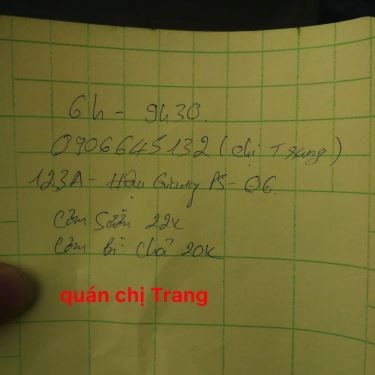 6h - 9h30.
0906645132 (chị Trang)
123A - Hậu Giang P5 - Q6.
Cơm Sườn 22k
Cơm bì chả 20k
quán chị Trang